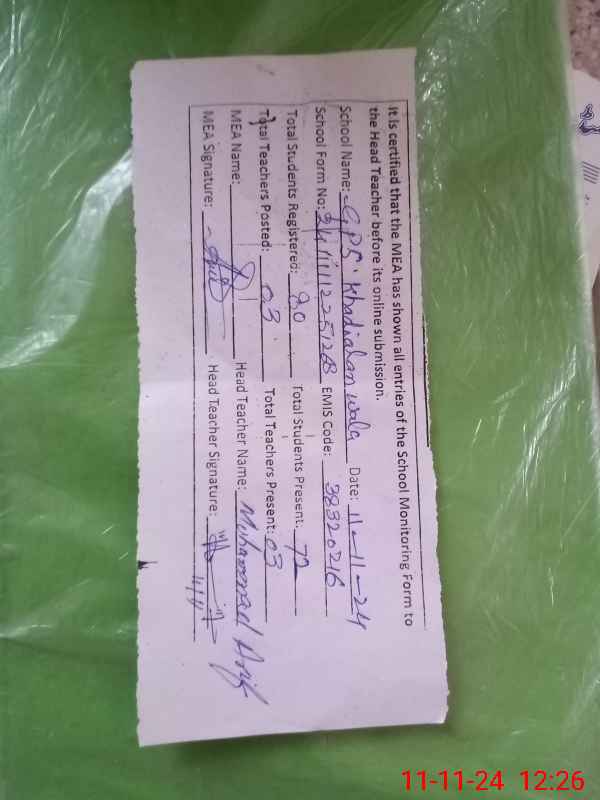 It is certified that the MEA has shown all entries of the School Monitoring Form to
the Head Teacher before its online submission.
School Name: GPS. Khadiahan wala Date: 11-11-24
School Form No: EMIS Code: 38320216
Total Students Registered: 80 Total Students Present. 72
Total Teachers Posted: 03 Total Teachers Present: 03
MEA Name: Head Teacher Name: Muhammad Arif
MEA Signature: Head Teacher Signature:
11-11-24 12:26